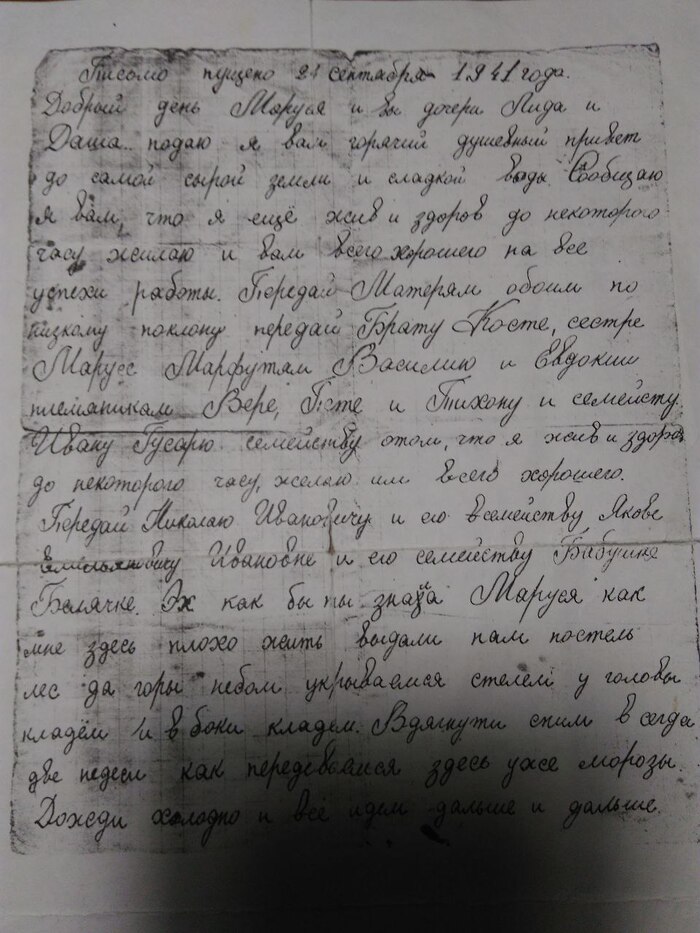 Письмо пущено 21 сентября 1941 года.
Добрый день Маруся и вы дочери Лида и
Даша подаю я вам горячий душевный привет
до самой сырой земли и сладкой воды Сообщаю
я вам, что я ещё жив и здоров до некоторого
часу жилаю и вам всего хорошего на все
успехи работы. Передай Матерям обоим по
низкому поклону передай Брату Косте, сестре
Марусе Марфутам Василию и Евдокии
племяникам Вере, Пете и Тихону и семейсту
Ивану Гусарю семейству отом, что я жив и здоров
до некоторого часу, желаю им всего хорошего.
Передай Николаю Ивановичу и его всемейству, Якове
Емельяновичу Ивановне и его семейству Бабушке
Белячке. Эх как бы ты знала Маруся как
мне здесь плохо жить выдали нам постель
лес да горы небом укрываемся стелем у головы
кладём и в боки кладем. Вдягнути спим всегда
две недели как передевымся здесь уже морозы.
Дожди холодно и всё идем дальше и дальше.